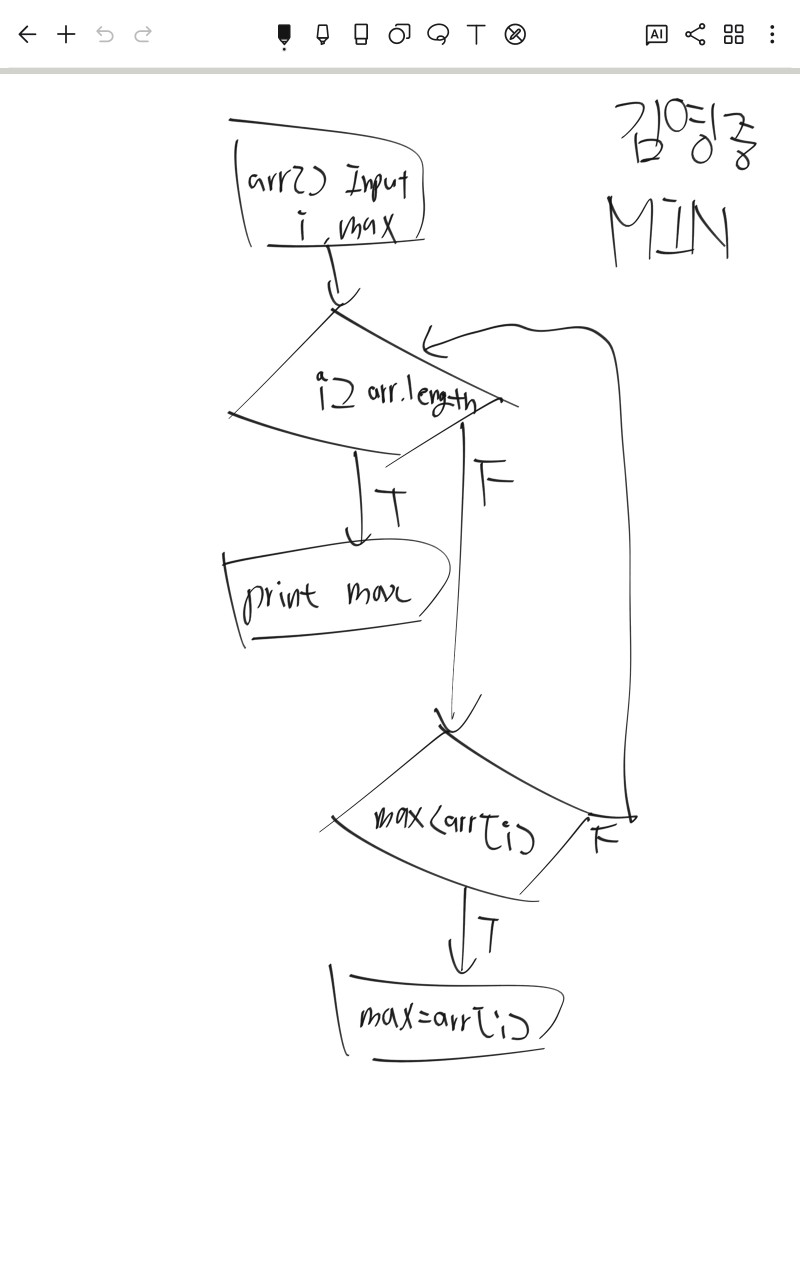 AI
김영종
MIN
arr[] Input
i, max
i ≥ arr.length
T
F
print max
max<arr[i]
F
T
max=arr[i]